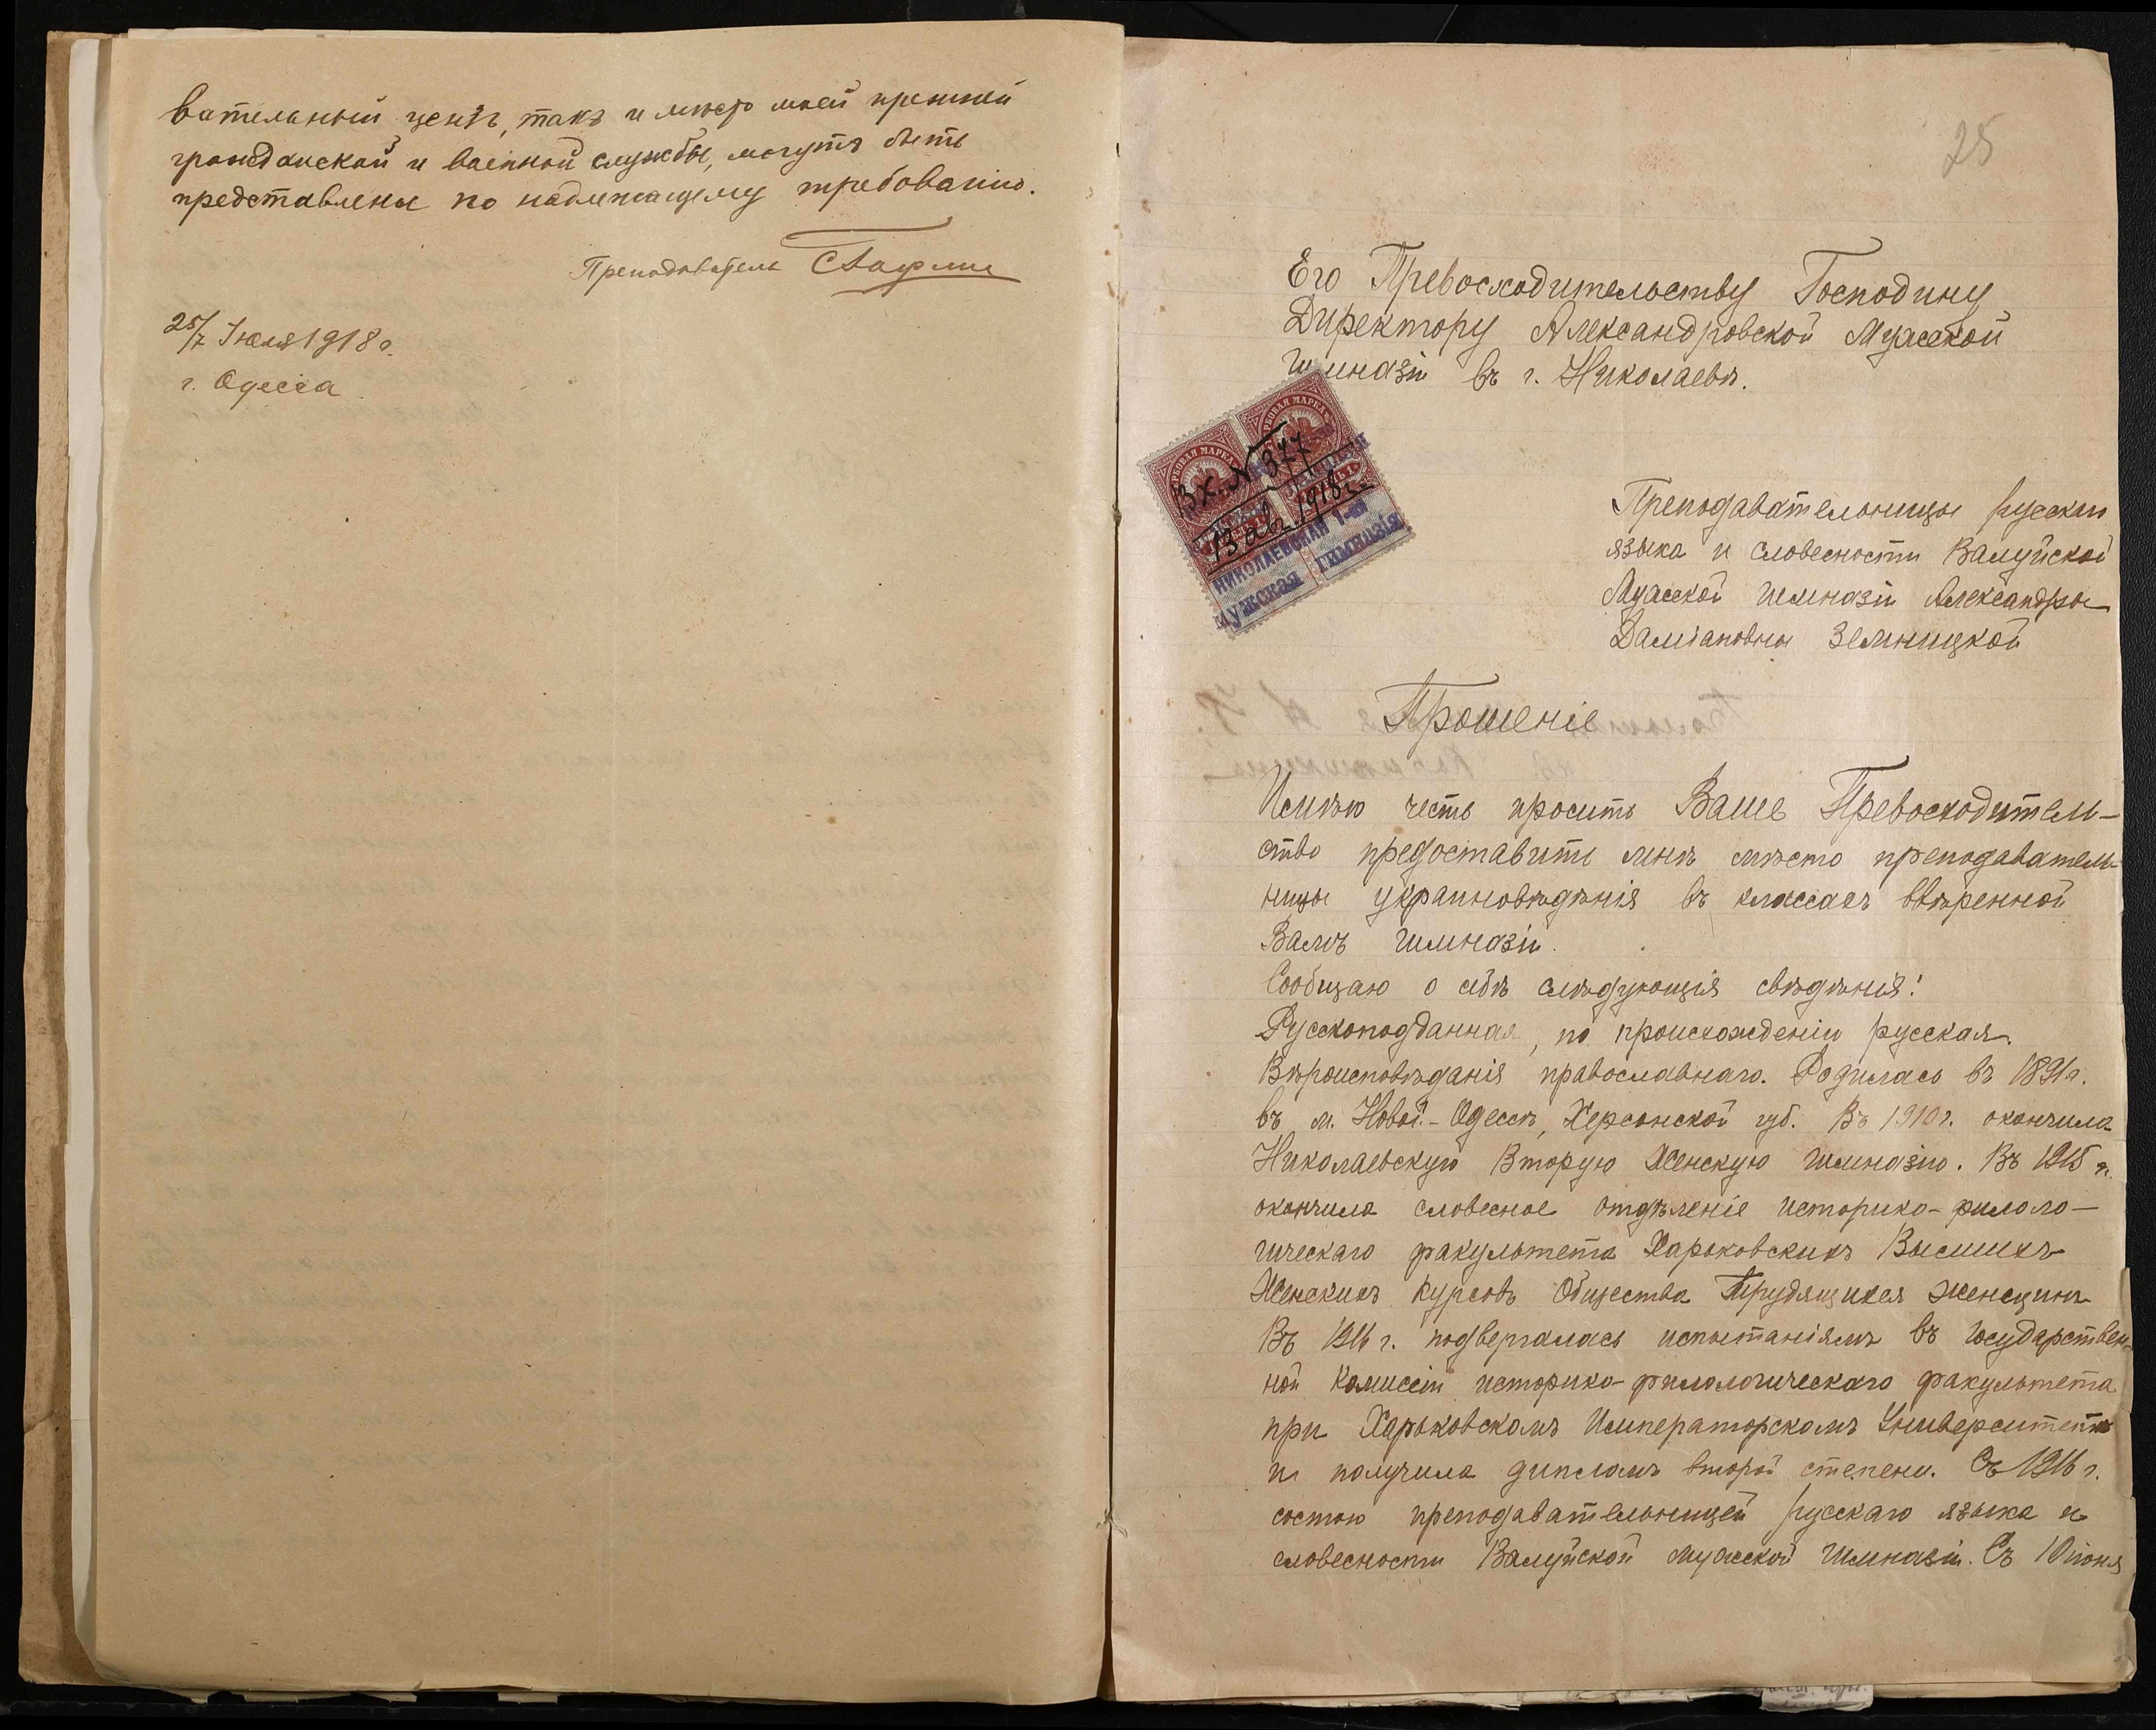 вательный ценз, такъ и место моей прежней
гражданской и военной службы, могутъ быть
представлены по надлежащему требованію.
Преподаватель
25/7 Июля 1918 г.
г. Одесса
25
Его Превосходительству Господину
Директору Александровской Мужской
Гимназіи въ г. Николаевѣ.
ГЕРБОВАЯ МАРКА ГЕРБОВАЯ МАРКА
Вх. № 377
13 ав. 1918 г.
НИКОЛАЕВСКАЯ 1-ая
мужская гимназія
Преподавательницы русскаго
языка и словесности Валуйской
Мужской гимназіи Александры
Даміановны Зелницкой
Прошеніе
Имѣю честь просить Ваше Превосходитель-
ство предоставить мнѣ мѣсто преподаватель-
ницы украиновѣдѣнія въ классахъ ввѣренной
Вамъ гимназіи.
Сообщаю о себѣ слѣдующія свѣдѣнія:
Русскоподданная, по происхожденію русская.
Вѣроисповѣданія православнаго. Родилась въ 1891 г.
въ м. Новой-Одессѣ, Херсонской губ. Въ 1910 г. окончила
Николаевскую Вторую Женскую гимназію. Въ 1915 г.
окончила словесное отдѣленіе историко-филоло-
гическаго факультета Харьковскихъ Высшихъ
Женскихъ Курсовъ Общества Трудящихся женщинъ
Въ 1916 г. подвергалась испытаніямъ въ государствен-
ной Комиссіи историко-филологическаго факультета
при Харьковскомъ Императорскомъ Университетѣ
и получила дипломъ второй степени. Съ 1916 г.
состою преподавательницей русскаго языка и
словесности Валуйской мужской гимназіи. Съ 10 іюня